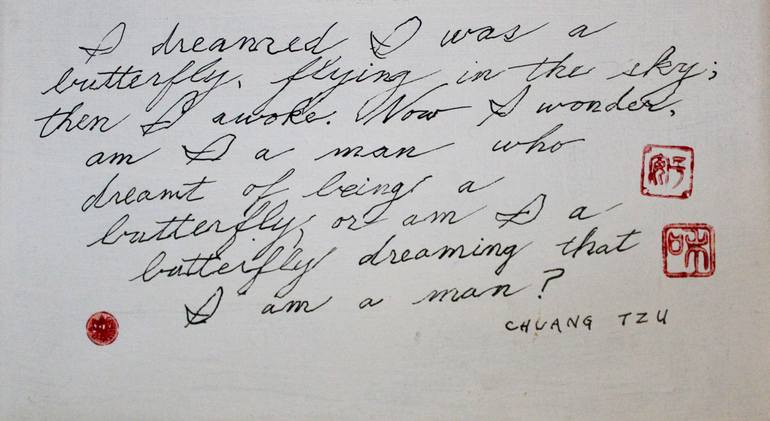 I dreamed I was a
butterfly, flying in the sky;
then I awoke. Now I wonder,
am I a man who
dreamt of being a
butterfly, or am I a
butterfly dreaming that
I am a man?
CHUANG TZU